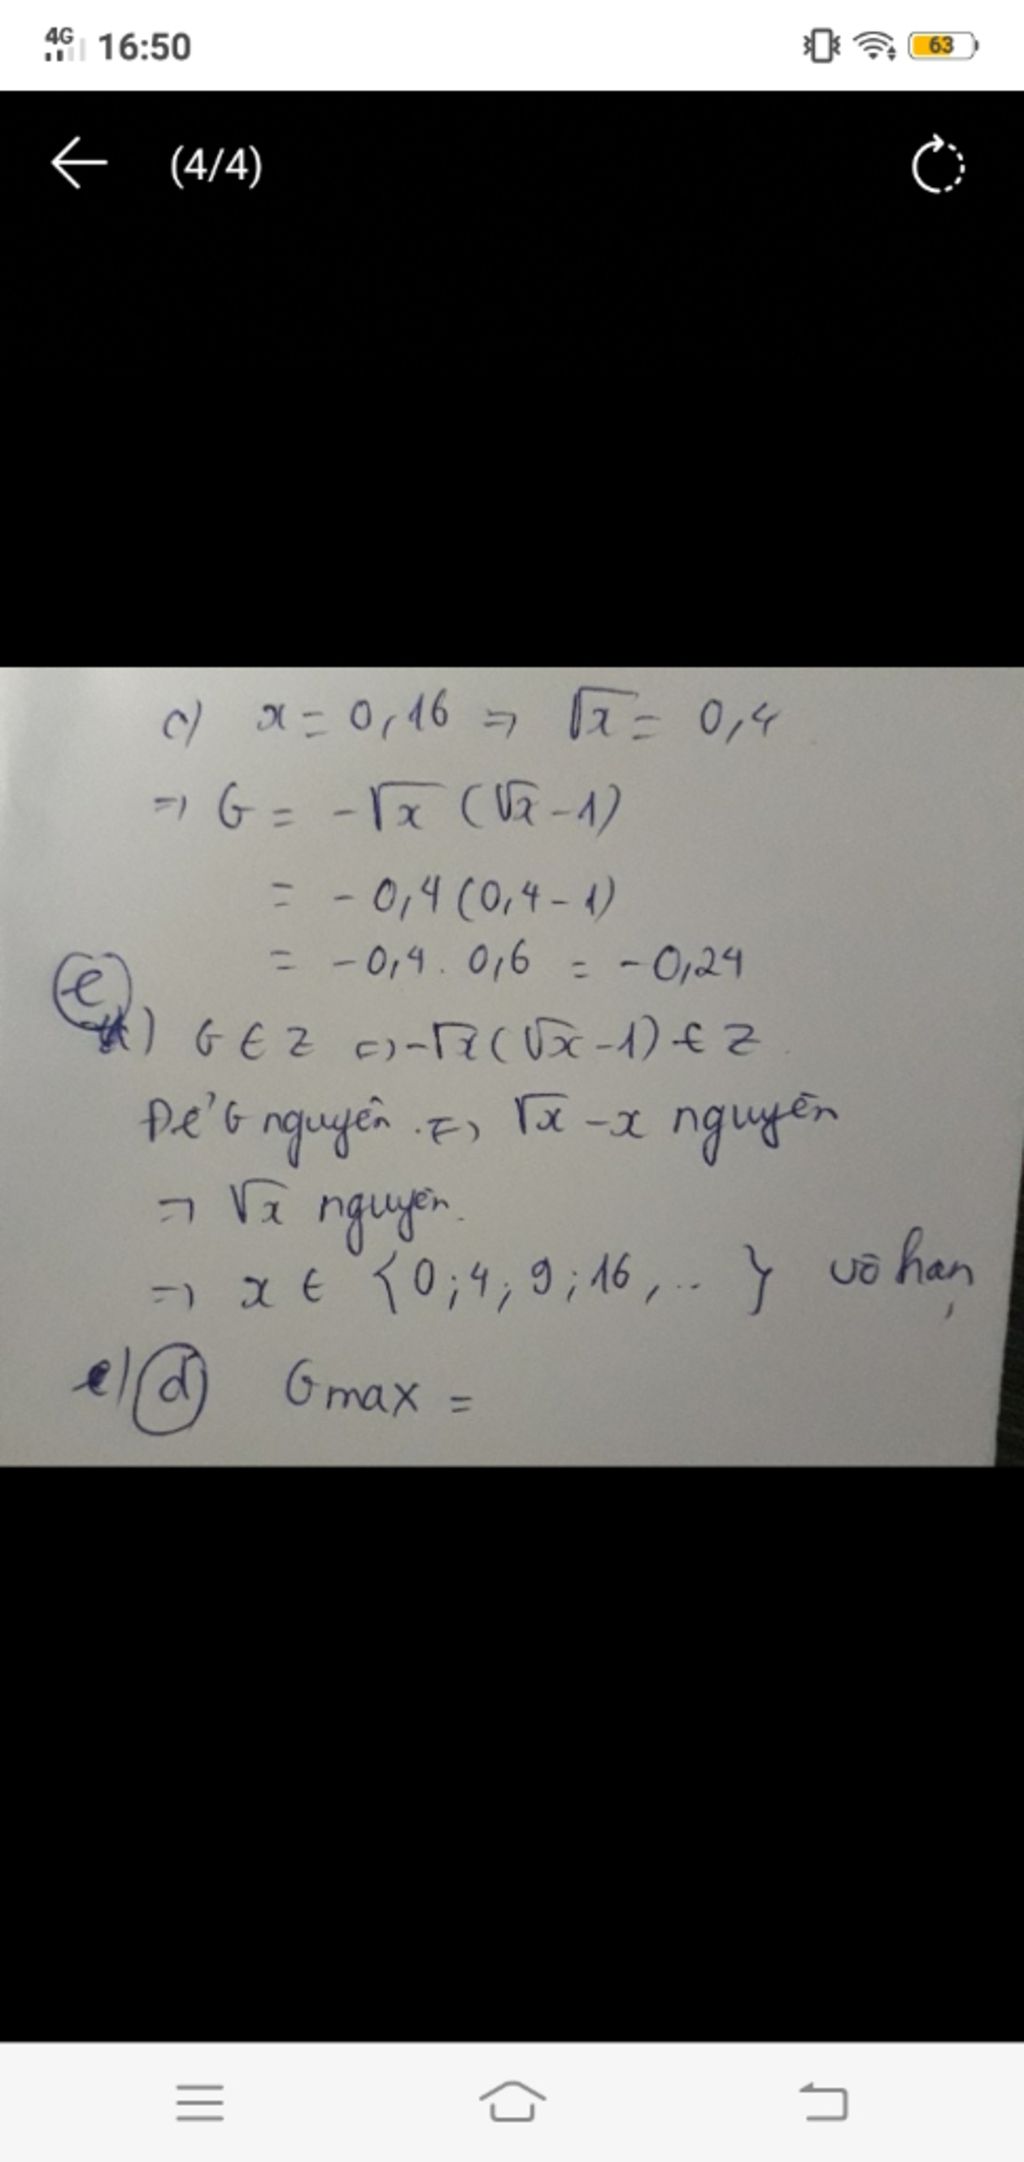 4G 16:50 63
(4/4)
c) x = 0,16 => √x = 0,4
=> G = -√x (√x - 1)
= -0,4 (0,4 - 1)
= -0,4 . 0,6 = -0,24
e) G ∈ Z <=> -√x (√x - 1) ∈ Z
Để G nguyên => √x - x nguyên
=> √x nguyên.
=> x ∈ {0; 4; 9; 16, .. } vô hạn
e) d Gmax =